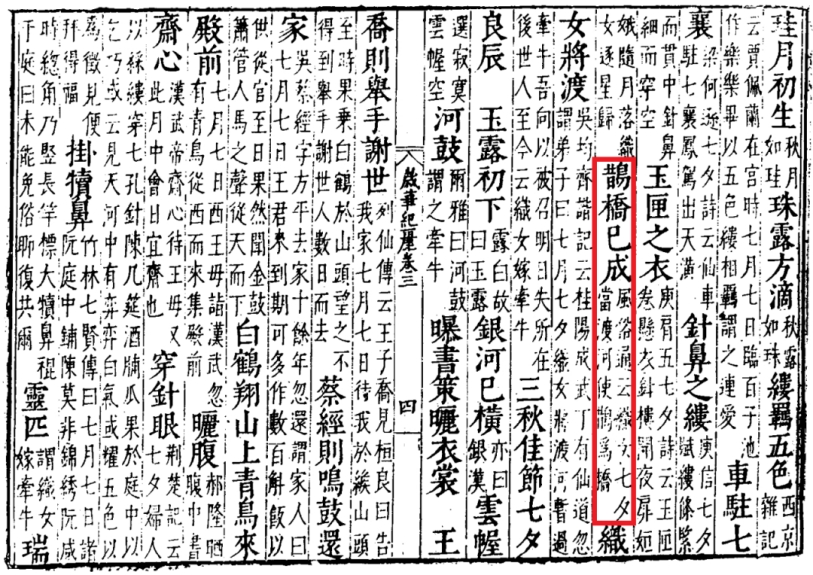 珪月初生秋月如珪珠露方滴秋露如珠縷羈五色西京雜記
云賈佩蘭在宮時七月七日臨百子池作樂樂畢以五色縷相羈謂之連愛車駐七
襄梁何遜七夕詩云仙車駐七襄鳳駕出天潢針鼻之縷庾信七夕賦縷條緊
而貫中針鼻細而穿空玉匣之衣庾肩五七夕詩云玉匣卷懸衣針樓開夜扉姮
娥隨月落織女逐星歸鵲橋已成風俗通云織女七夕當渡河使鵲爲橋織
女將渡吳均齊諧記云桂陽成武丁有仙道忽謂弟子曰七月七夕織女將渡河暫過
牽牛吾向以被召明日失所在後世人至今云織女嫁牽牛三秋佳節七夕
良辰 玉露初下露白故曰玉露銀河已橫亦曰銀漢雲幄
選寂寞雲幄空河鼓爾雅曰河鼓謂之牽牛曝書策曬衣裳 王
歲華紀麗卷三 四
喬則舉手謝世列仙傳云王子喬見桓良曰告我家七月七日待我於緱山頭
至時果乘白鶴於山頭望之不得到舉手謝世人數日而去蔡經則鳴鼓還
家吳蔡經字方平去家十餘年忽還謂家人曰七月七日王君來到期可多作數百斛飯以
世從官至日果然聞金鼓簫管人馬之聲從天而下白鶴翔山上青鳥來
殿前七月七日西王母詣漢武忽有青鳥從西而來集殿前曬腹郝隆曬腹中書
齋心漢武帝齋心待王母又此月中會日宜齋也穿針眼荊楚記云七夕婦人
以綵縷穿七孔針陳几筵酒脯瓜果於庭中以乞巧或云見天河中有奕奕白氣或耀五色以
爲徵見便拜得福掛犢鼻竹林七賢傳曰七月七日諸阮庭中鋪陳莫非錦綉阮咸
時總角乃竪長竿標大犢鼻裩于庭曰未能免俗聊復共爾靈匹謂織女嫁牽牛瑞